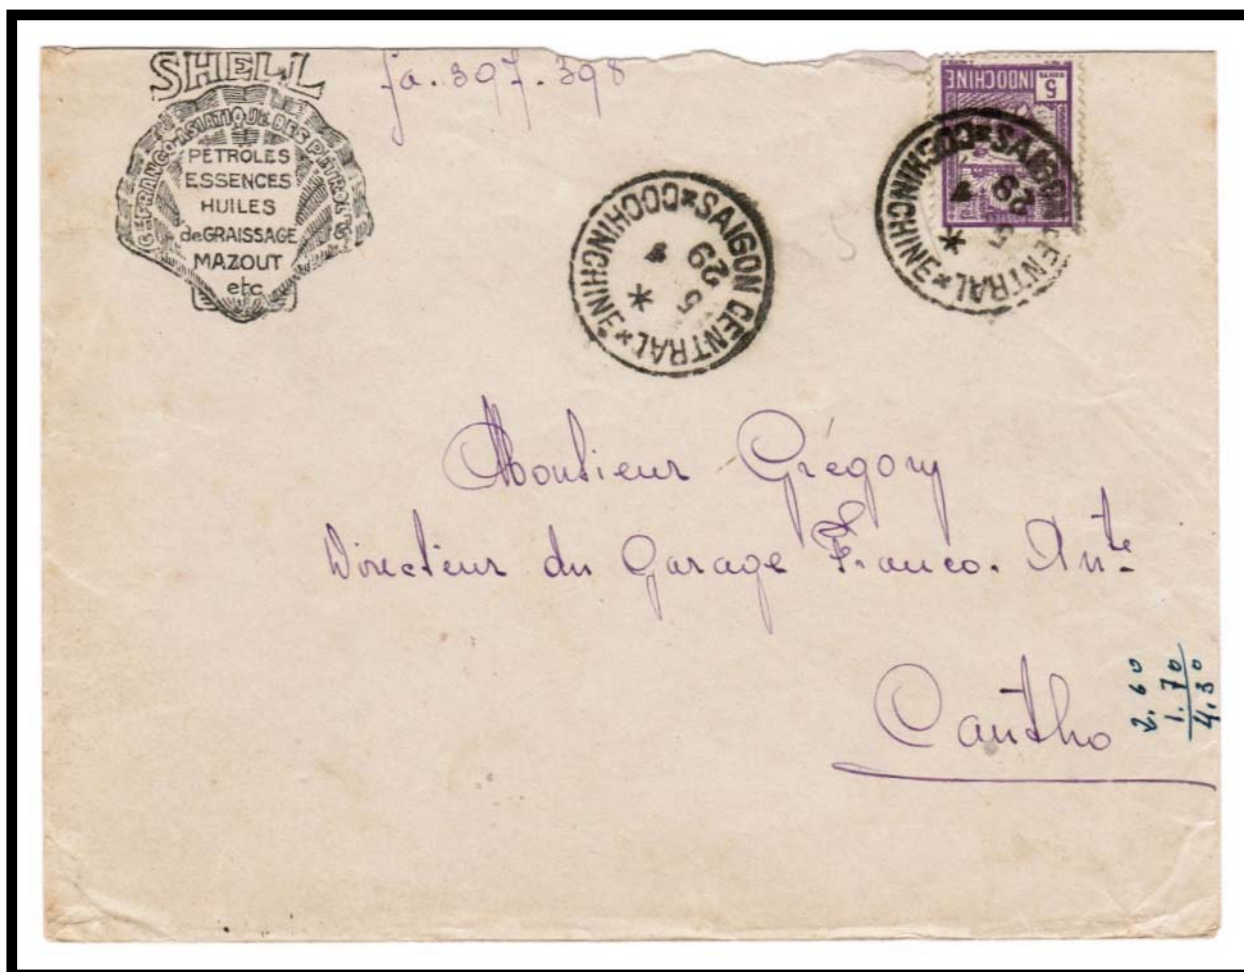 SHELL
Cie FRANCO-ASIATIQUE DES PÉTROLES
PÉTROLES
ESSENCES
HUILES
de GRAISSAGE
MAZOUT
etc
fa. 397. 398
5
INDOCHINE
SAIGON CENTRAL * COCHINCHINE *
29
SAIGON CENTRAL * COCHINCHINE *
5
29
Monsieur Grégory
Directeur du Garage Franco. Ante
Cantho
2.60
1.70
4.30